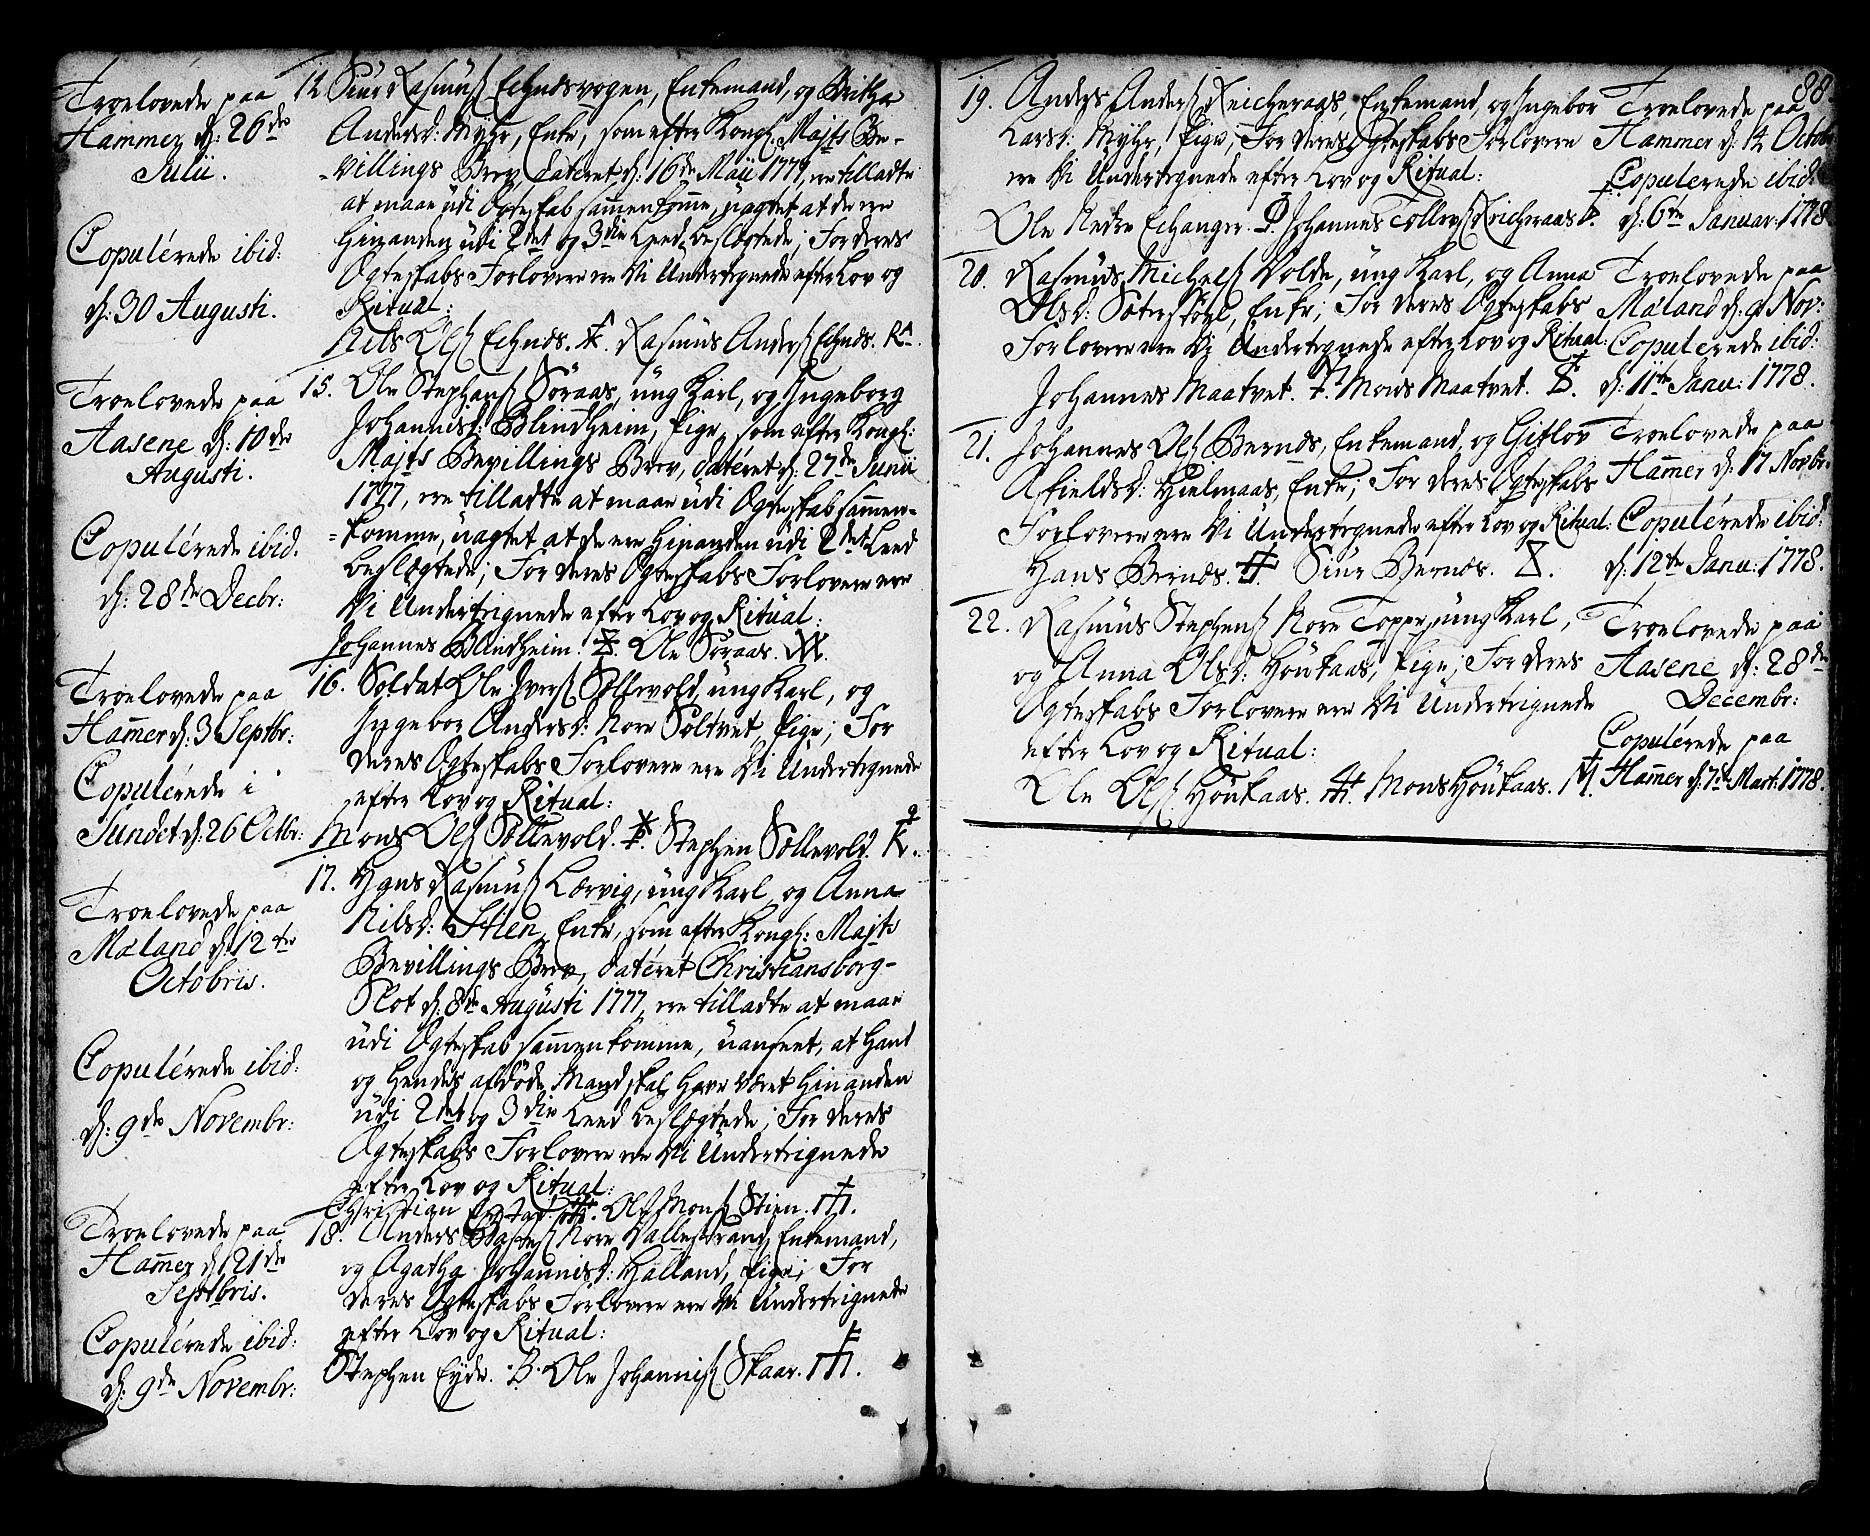 Troelovede paa
Hammer d: 26de
Julii.
Copulerede ibid:
d: 30 Augusti.
14. Siur Rasmuss Echnesvogen, Enkemand, og Britha
Andersd: Myhr, Enke, som efter Kongl: Majts Be-
-villings Brev, dateret d: 16de Maii 1777, ere tilladte
at maae udi Ægteskab sammenkomme, uagtet at de ere
hinanden udi 2det og 3die Leed beslægtede; For deres
Ægteskabs Forlovere ere Vi Undertegnede efter Lov og
Ritual:
Nils Ols Echnes. Rasmus Anders Echnes. RA.
Troelovede paa
Aasene d: 10de
Augusti.
Copulerede ibid.
d: 28de Decbr:
15. Ole Stephens Söraas, ung Karl, og Ingeborg
Johannisd: Blindheim, Pige, som efter Kongl:
Majts Bevillings Brev, dateret d: 27de Junii
1777, ere tilladte at maae udi Ægteskab sammen-
-komme, uagtet at de ere hinanden udi 2det Leed
beslægtede; For deres Ægteskabs Forlovere ere
Vi Undertegnede efter Lov og Ritual:
Johannes Blindheim. Ole Söraas.
Troelovede paa
Hamer d: 3 Septbr:
Copulerede i
Sundet d: 26 Octbr:
16. Soldat Ole Ivers Söllevold, ung Karl, og
Ingebor Andersd: Nore Soltvet, Pige; For
deres Ægteskabs Forlovere ere Vi Undertegnede
efter Lov og Ritual:
Mons Ols Söllevold. Stephen Söllevold.
Troelovede paa
Mæland d: 12te
Octobris.
Copulerede ibid:
d: 9de Novembr:
17. Hans Rasmuss Lervig, ung Karl og Anna
Nilsd: Stien, Enke, som efter Kongl: Majts
Bevillings Brev, dateret Christiansborg-
Slot d: 8de Augusti 1777, ere tilladte at maae
udi Ægteskab sammenkomme, uanseet, at hans
og hendes afdöde Mand skal have været hinanden
udi 2det og 3die Leed beslægtede; For deres
Ægteskabs Forlovere ere Vi Undertegnede
efter Lov og Ritual:
Christian Ole Mons Stien.
Troelovede paa
Hamer d: 21de
Septbris.
Copulerede ibid:
d: 9de Novembr:
18. Anders Nore Vallestrand, Enkemand,
og Agatha Johannisd: Hålland, Pige; For
deres Ægteskabs Forlovere ere Vi Undertegnede
efter Lov og Ritual:
Stephen Eyde. B. Ole Johannis Skaar.
88.
19. Anders Anders Reicheraas, Enkemand, og Ingebor
Larsd: Myhr, Pige, For deres Ægteskabs Forlovere
ere Vi Undertegnede efter Lov og Ritual:
Ole Nedre Echanger. Johannes Tollevs Reicheraas.
Troelovede paa
Hammer d: 4 Octobr
Copulerede ibid:
d: 6te Januar: 1778
20. Rasmus Michels Volde, ung Karl, og Anna
Olsd: Sæterstöhl, Enke; For deres Ægteskabs
Forlovere ere Vi Undertegnede efter Lov og Ritual:
Johannes Maatvet. Mons Maatvet.
Troelovede paa
Mæland d: 9 Nov:
Copulerede ibid:
d: 11te Janu: 1778.
21. Johannes Ols Bernes, Enkemand, og Gitlov
Afieldsd: Hielmaas, Enke; For deres Ægteskabs
Forlovere ere Vi Undertegnede efter Lov og Ritual:
Hans Bernes. Siur Bernes.
Troelovede paa
Hamer d: 17 Novbr.
Copulerede ibid:
d: 12te Janu: 1778.
22. Rasmus Stephens Nore Toppe, ung Karl,
og Anna Olsd: Höukaas, Pige; For deres
Ægteskabs Forlovere ere Vi Undertegnede
efter Lov og Ritual:
Ole Ols Höukaas. Mons Höukaas.
Troelovede paa
Aasene d: 28de
Decembr:
Copulerede paa
Hamer d: 7de Mart: 1778.